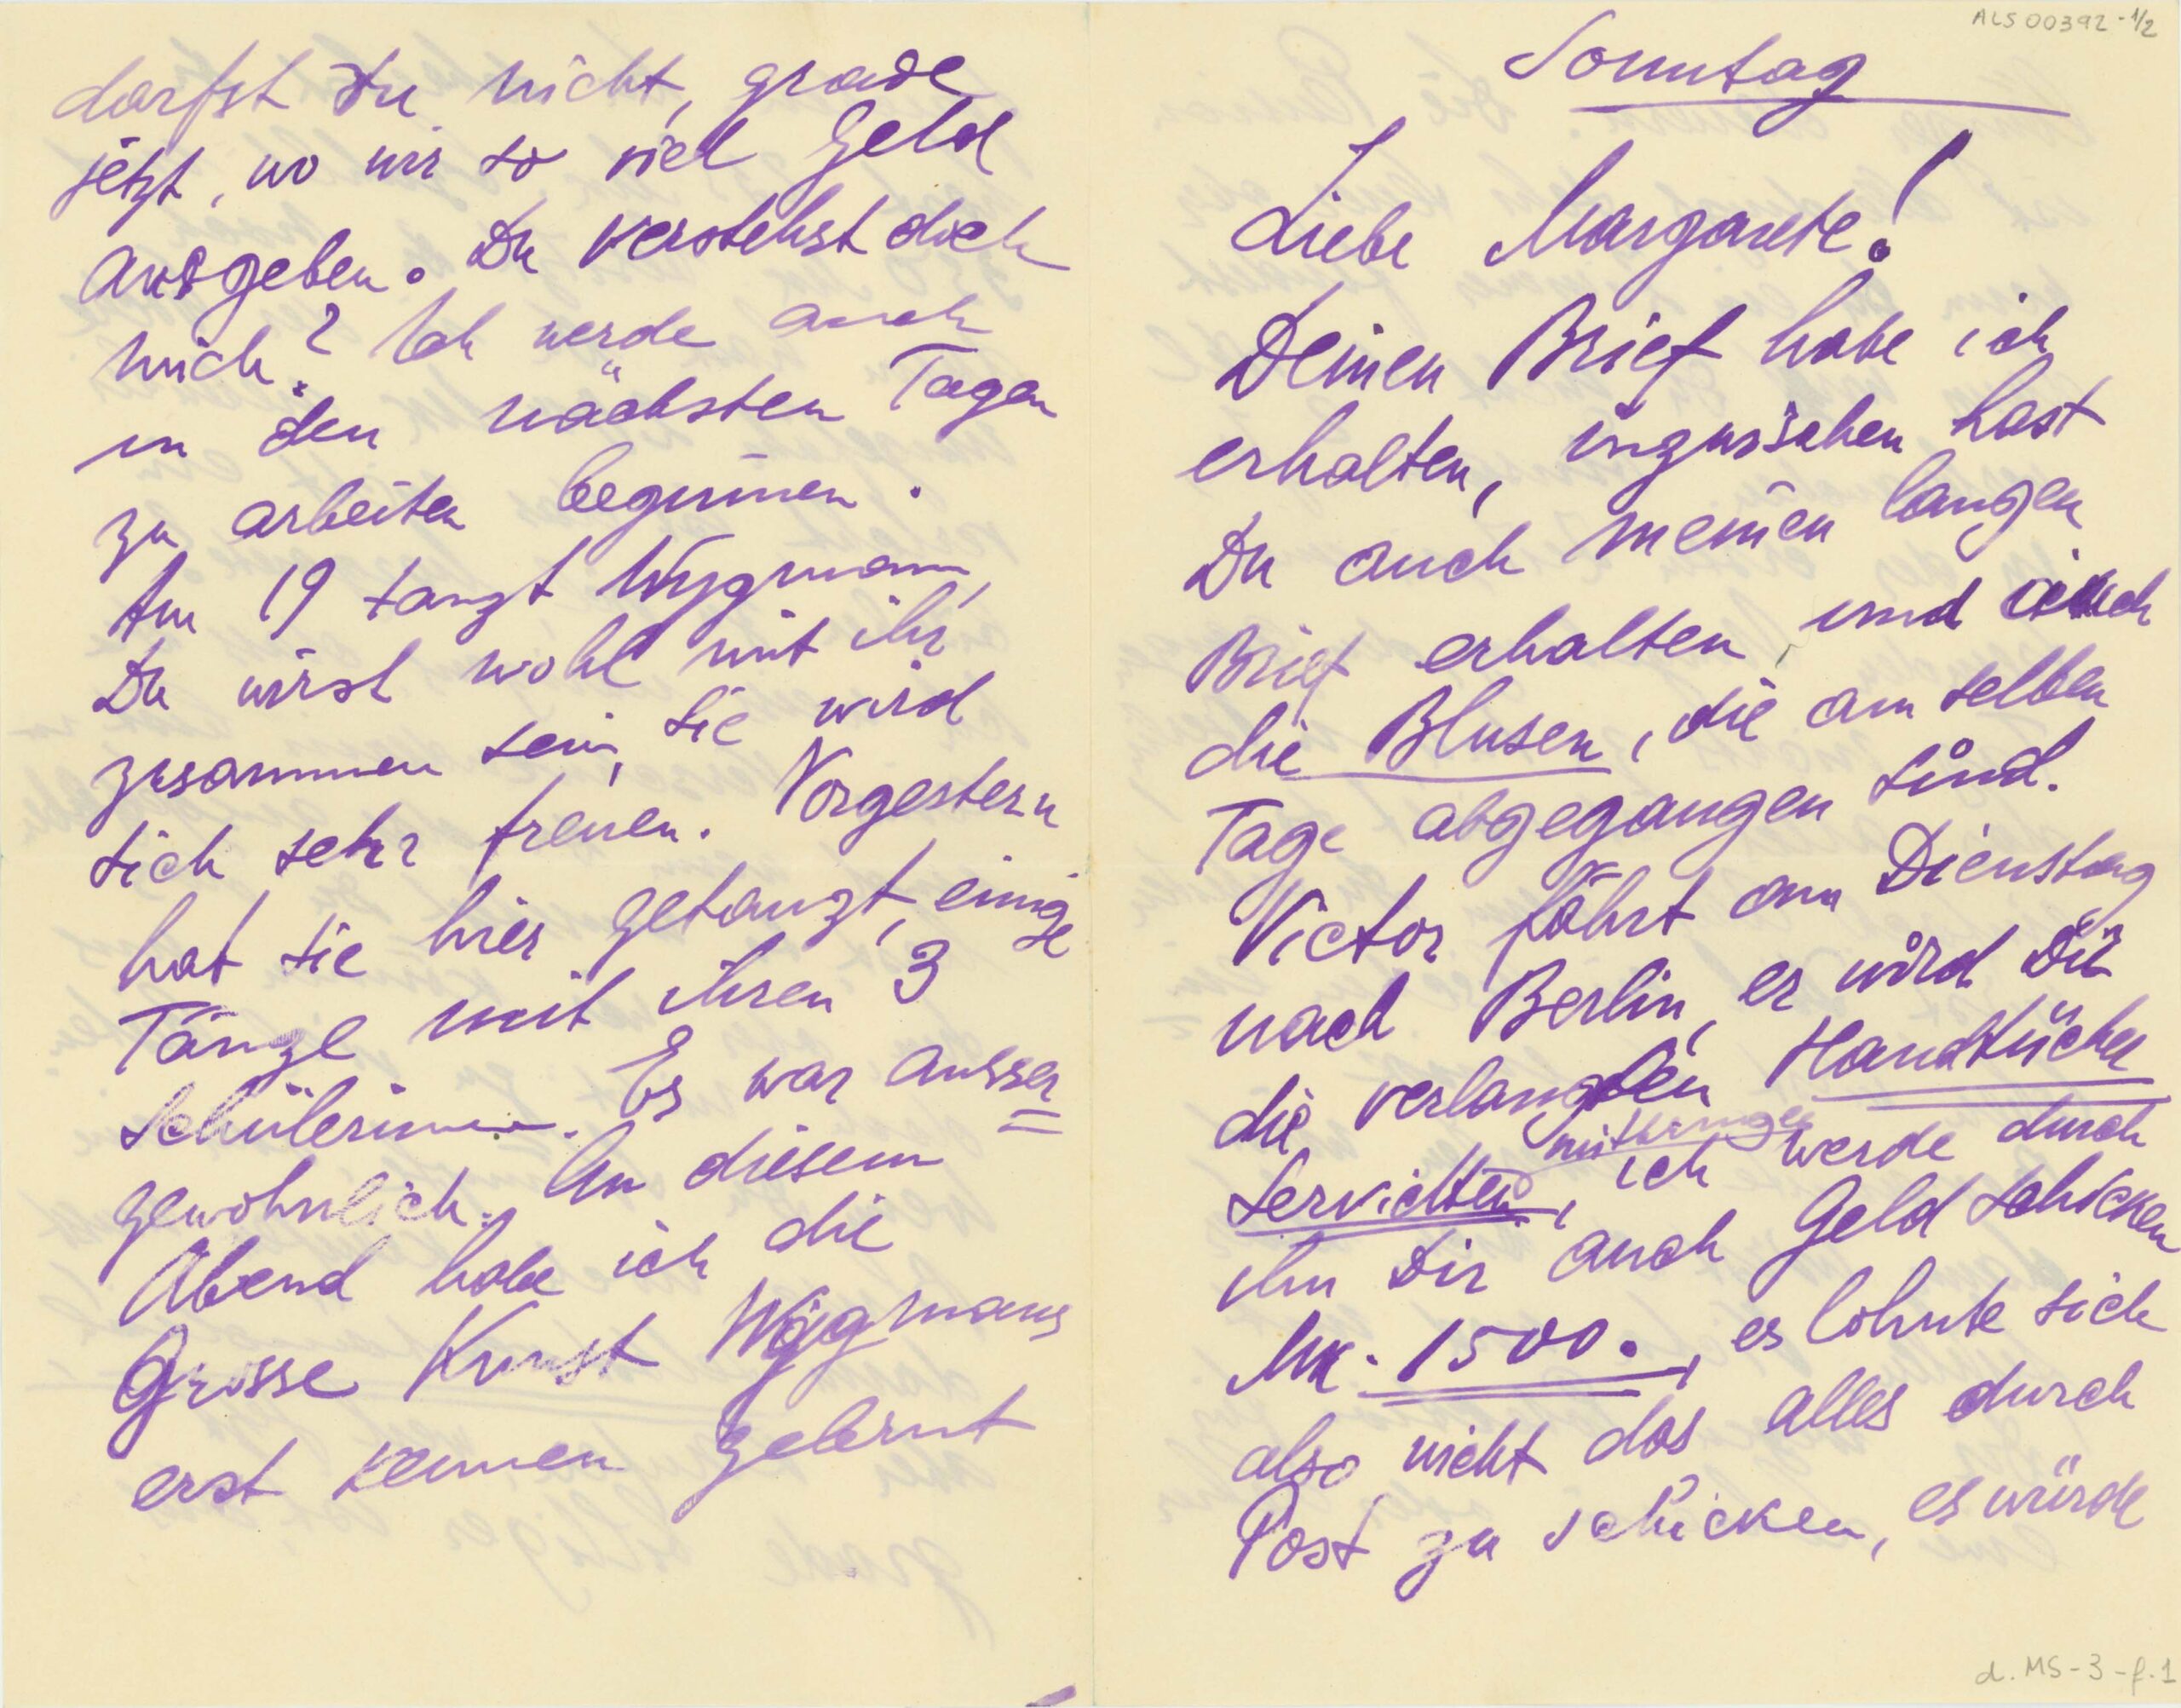 ALS 00392-1/2
Sonntag
Liebe Margarete!
Deinen Brief habe ich
erhalten, inzwischen hast
Du auch meinen langen
Brief erhalten, und auch
die Blusen, die am selben
Tage abgegangen sind.
Victor fährt am Dienstag
nach Berlin, er wird Dir
die verlangten Handtücher
mitbringen
Servietten, ich werde durch
ihn Dir auch Geld schicken
Mk. 1500., es lohnte sich
also nicht das alles durch
Post zu schicken, es würde
d. MS-3-f.1
darfst Du nicht, grade
jetzt, wo wir so viel Geld
ausgeben. Du verstehst doch
mich? Ich werde auch
in den nächsten Tagen
zu arbeiten beginnen.
Am 19 tanzt Wygmann,
Du wirst wohl mit ihr
zusammen sein, sie wird
sich sehr freuen. Vorgestern
hat sie hier getanzt, einige
Tänze mit ihren 3
Schülerinnen. Es war ausser=
gewöhnlich. An diesem
Abend habe ich die
Grosse Kunst Wygmans
erst kennen gelernt